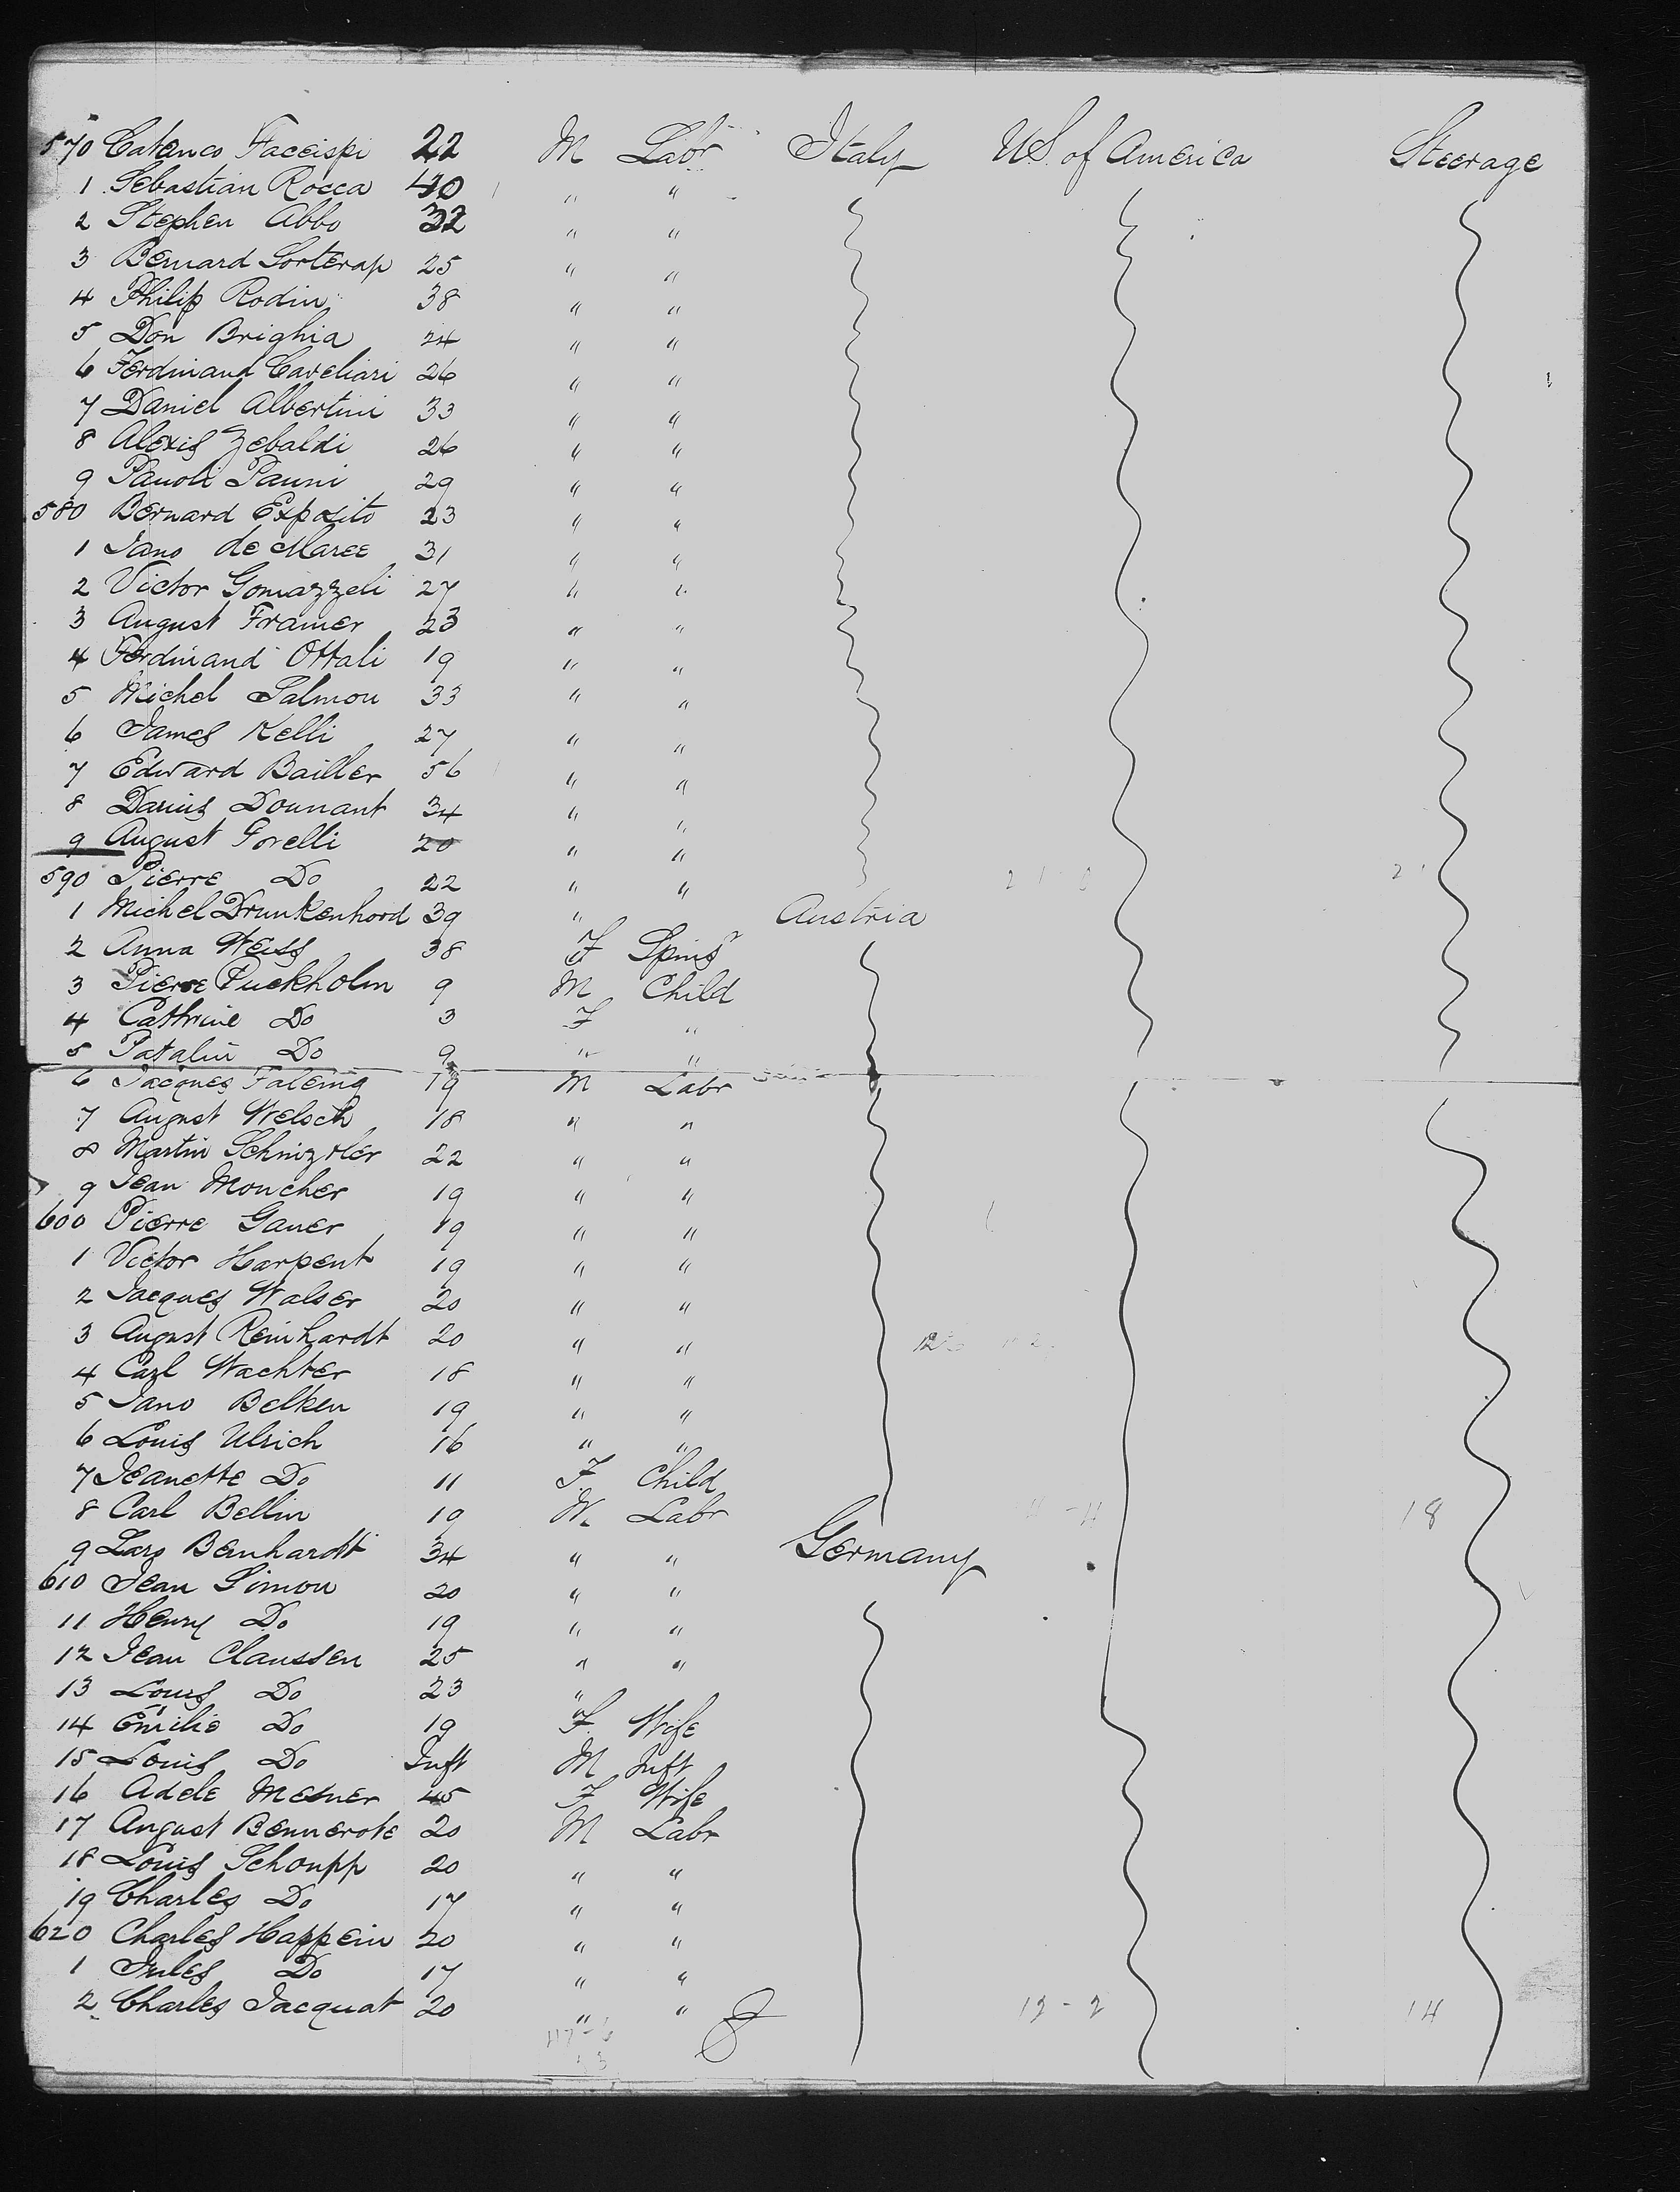 570 Catanco Facecispi 22 M Labr Italy U.S. of America Steerage
1 Sebastian Rocca 40 " "
2 Stephen Abbo 32 " "
3 Bernard Sorterap 25 " "
4 Philip Rodin 38 " "
5 Don Brighia 24 " "
6 Ferdinand Caveliari 26 " "
7 Daniel Albertini 33 " "
8 Alexis Zebaldi 26 " "
9 Pauoli Pauni 29 " "
580 Bernard Exposito 23 " "
1 Jano de Maree 31 " "
2 Victor Gomazzeli 27 " "
3 August Framer 23 " "
4 Ferdinand Ottali 19 " "
5 Michel Salmon 33 " "
6 James Kelli 27 " "
7 Edward Bailler 56 " "
8 Darius Dounant 34 " "
9 August Forelli 20 " "
590 Pierre Do 22 " "
1 Michel Drunkenhord 39 " Austria
2 Anna Weiss 38 F Spinsr
3 Pierre Puckholm 9 M Child
4 Cathrine Do 3 F "
5 Patalin Do 9 " "
6 Jacques Faleing 19 M Labr
7 August Welsch 18 " "
8 Martin Schniztler 22 " "
9 Jean Moncher 19 " "
600 Pierre Gauer 19 " "
1 Victor Harpent 19 " "
2 Jacques Walser 20 " "
3 August Reinhardt 20 " "
4 Carl Wachter 18 " "
5 Jano Belken 19 " "
6 Louis Ulrich 16 " "
7 Jeanette Do 11 F Child
8 Carl Bellin 19 M Labr 18
9 Lars Bernhardt 34 " " Germany
610 Jean Simon 20 " "
11 Henry Do 19 " "
12 Jean Claussen 25 " "
13 Louis Do 23 "
14 Emilie Do 19 F Wife
15 Louis Do Inft M Inft
16 Adele Mesner 45 F Wife
17 August Bennerote 20 M Labr
18 Louis Schoupp 20 " "
19 Charles Do 17 " "
620 Charles Happein 20 " "
1 Jules Do 17 " "
2 Charles Jacquat 20 " " 12-2 14